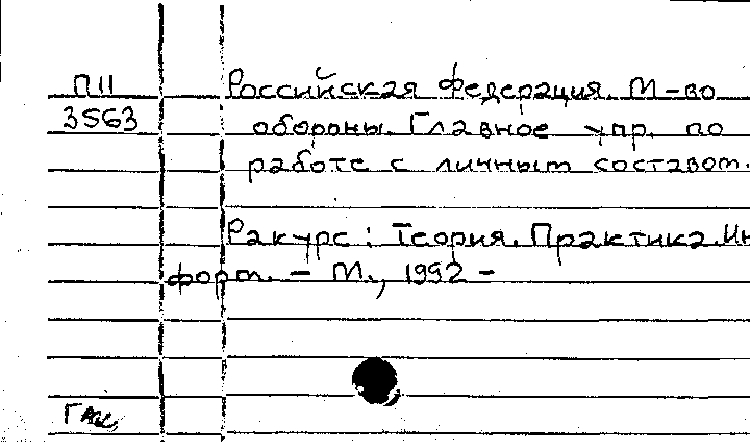 П11 Российская Федерация. М-во
3563 обороны. Главное упр. по
работе с личным составом.
Ракурс: Теория. Практика. Ин
форм. – М., 1992 –